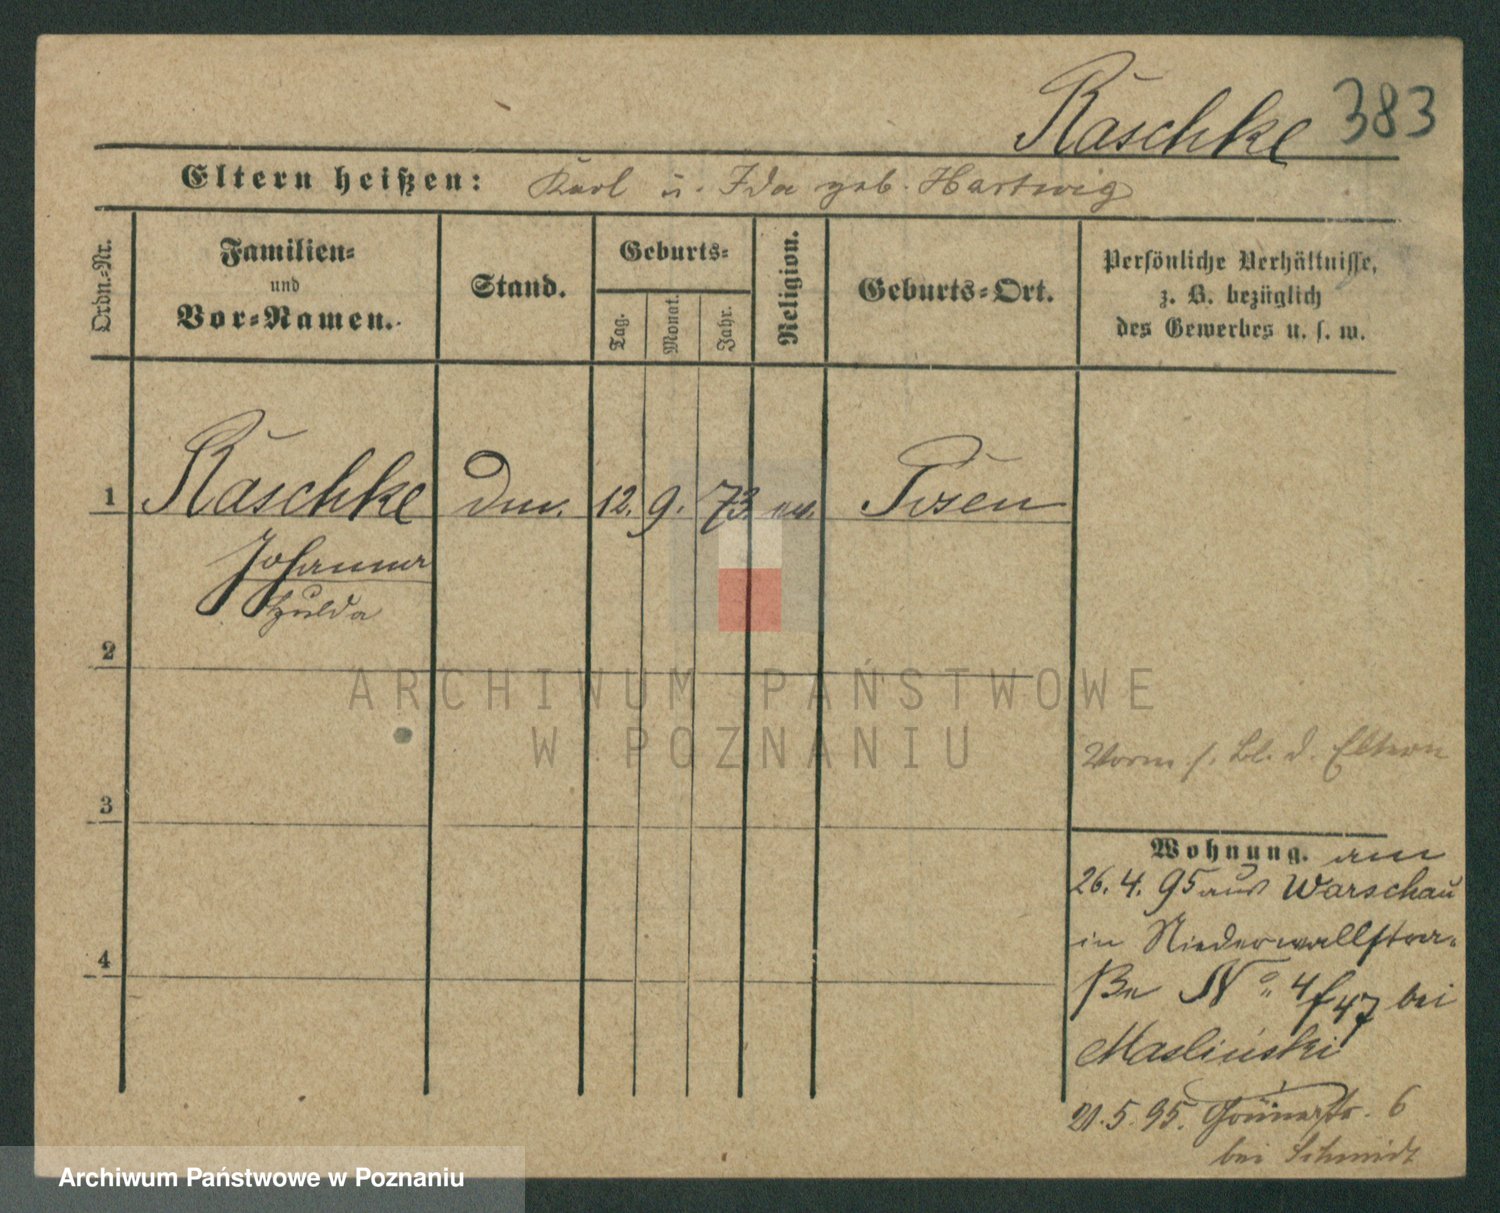 Raschke 383
Eltern heißen: Karl u. Ida geb. Hartwig
Ordn.-Nr.
Familien-
und
Vor-Namen.
Stand.
Geburts-
Tag.
Monat.
Jahr.
Religion.
Geburts-Ort.
Persönliche Verhältnisse,
z. B. bezüglich
des Gewerbes u. s. w.
1 Raschke 12. 9. 73. ev. Posen
Johanna
Hulda
2
ARCHIWUM PAŃSTWOWE
W POZNANIU
Vorm s. Bl. d. Eltern
3
Wohnung. am
26. 4. 95 aus Warschau
in Niederwallstra-
4
ße No 4/47 bei
Masliński
21. 5. 95. 6
bei Schmidt
Archiwum Państwowe w Poznaniu